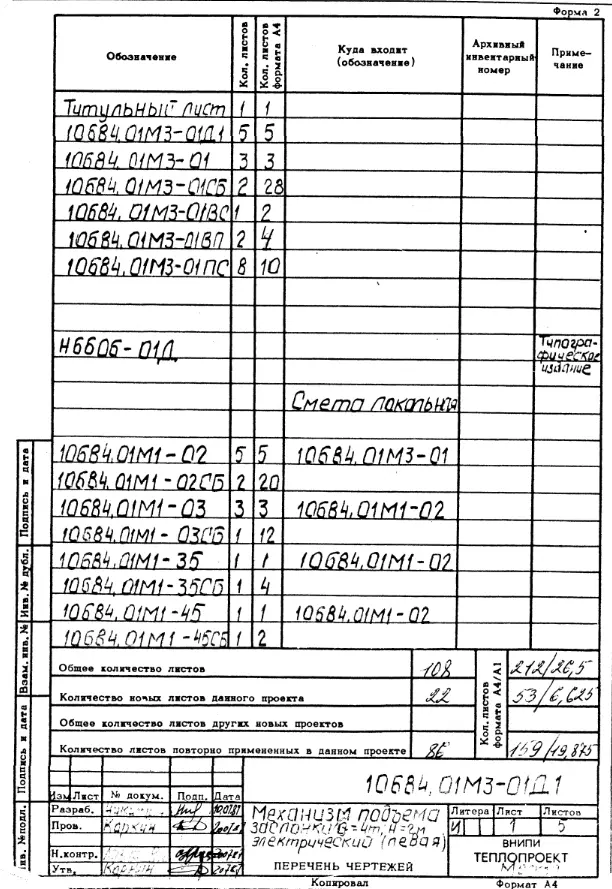 Форма 2
Обозначение Кол. листов Кол. листов формата А4 Куда входит (обозначение) Архивный инвентарный номер Приме-чание
Титульный лист 1 1
10684.01М3-01Д1 5 5
10684.01М3-01 3 3
10684.01М3-01СБ 2 28
10684.01М3-01ВС 1 2
10684.01М3-01ВП 2 4
10684.01М3-01ПС 8 10
Н6606-01Д Типогра-
фическое
издание
Смета локальная
10684.01М1-02 5 5 10684.01М3-01
10684.01М1-02СБ 2 20
10684.01М1-03 3 3 10684.01М1-02
10684.01М1-03СБ 1 12
10684.01М1-35 1 1 10684.01М1-02
10684.01М1-35СБ 1 4
10684.01М1-45 1 1 10684.01М1-02
10684.01М1-45СБ 1 2
Общее количество листов 108 Кол. листов формата А4/А1 212/26,5
Количество новых листов данного проекта 22 53/6,625
Общее количество листов других новых проектов
Количество листов повторно примененных в данном проекте 159/19,875
Инв. №подл. Подпись и дата Взам. инв. № Инв. № дубл. Подпись и дата
10684.01М3-01Д1
Изм Лист № докум. Подп. Дата
Разраб.
Пров. Коркин
Н.контр.
Утв.
Механизм подъема
заслонки Q=4т, H=2м
электрический (левая)
ПЕРЕЧЕНЬ ЧЕРТЕЖЕЙ
Литера Лист Листов
И 1 5
ВНИПИ
ТЕПЛОПРОЕКТ
Копировал Формат А4